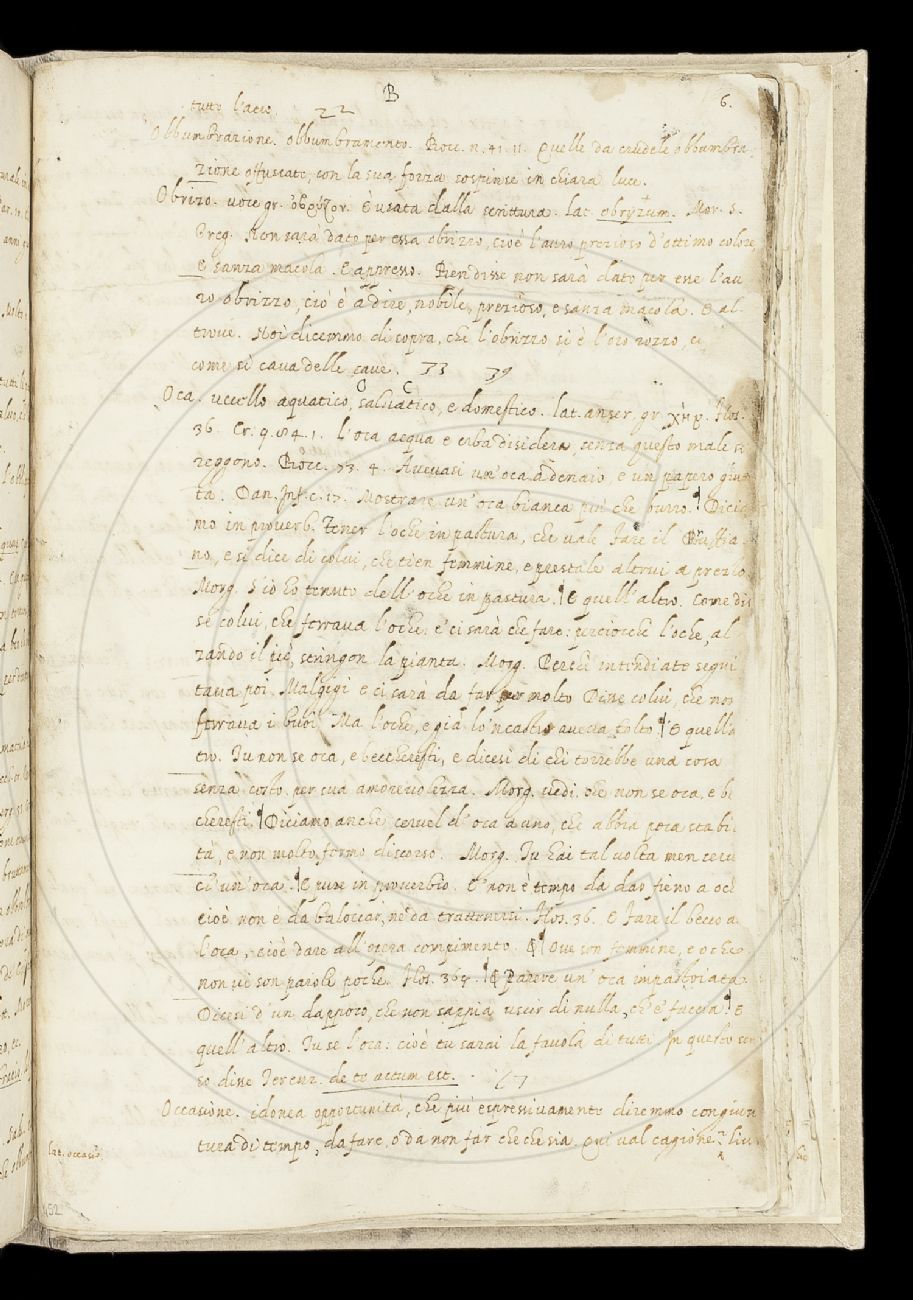 B
6.
tutto l'aere. 22
Obbumbrazione. obbumbramento. Bocc. n. 41. 11. Quelle da crudele obbumbra
zione offuscate, con la sua forza sospinse in chiara luce.
Obrizo. voce gr. ὄβρυζον. È usata dalla scrittura. lat. obryzum. Mor. S.
Greg. Non sarà dato per essa obrizzo, cioè l'auro prezioso d'ottimo colore
e sanza macola. E appresso. Ben disse non sarà dato per esse l'au
ro obrizzo, ciò è a dire, nobile, prezioso, e sanza macola. E al-
trove. Noi dicemmo di sopra, che l'obrizzo si è l'oro rozzo,
come si cava delle cave. 33 39
O C
Oca. uccello aquatico, salvatico, e domestico. lat. anser, gr. χήν. Flos.
36. Cr. 9. 84. 1. l'oca acqua e erba disidera, senza questo male si
reggono. Bocc. 73. 4. Avevasi un'oca a denaio, e un papero giun
ta. Dan. Inf. c. 17. Mostrare un'oca bianca più che burro. Dicia
mo in proverb. Tener l'oche in pastura, che vale fare il Ruffia
no, e si dice di colui, che tien femmine, e prestale altrui a prezzo
Morg. S'io ho tenuto dell'oche in pastura. E quell'altro. Come dis
se colui, che ferrava l'oche: e' ci sarà che fare: perciocchè l'oche, al
zando il piè, stringon la pianta. Morg. Perchè intendiate segui
tava poi Malgigi e ci sarà da far per molto Disse colui, che non
ferrava i buoi, Ma l'oche, e già lo 'ncastro aveva tolto. E quell'a
tro. Tu non se oca, e beccheresti, e dicesi di chi torrebbe una cosa
senza costo, per sua amorevolezza. Morg. vedi che non se oca, e be
cheresti. Diciamo anche cervel d'oca a uno, che abbia poca stabi-
tà, e non molto fermo discorso. Morg. Tu hai tal volta men cerv
el un'oca. E pure in proverbio. E' non è tempo da dar fieno a oche
cioè non è da baloccar, nè da trattenersi. Flos. 36. E Fare il becco a
l'oca, cioè dare all'opera compimento. E Ove son femmine, e oche
non vi son parole poche. Flos. 367. E Parere un'oca impastoiata.
Dicesi d'un dappoco, che non sappia uscir di nulla, ch'e' faccia. E
quell'altro. Tu se l'oca: cioè tu sarai la favola di tutti. In questo sen
so disse Terenz. de te actum est. 67
Occasione. idonea opportunità, che più espressivamente diremmo congiun
tura di tempo, da fare, o da non far che che sia. Qui val cagione. Liv
lat. occasio
452